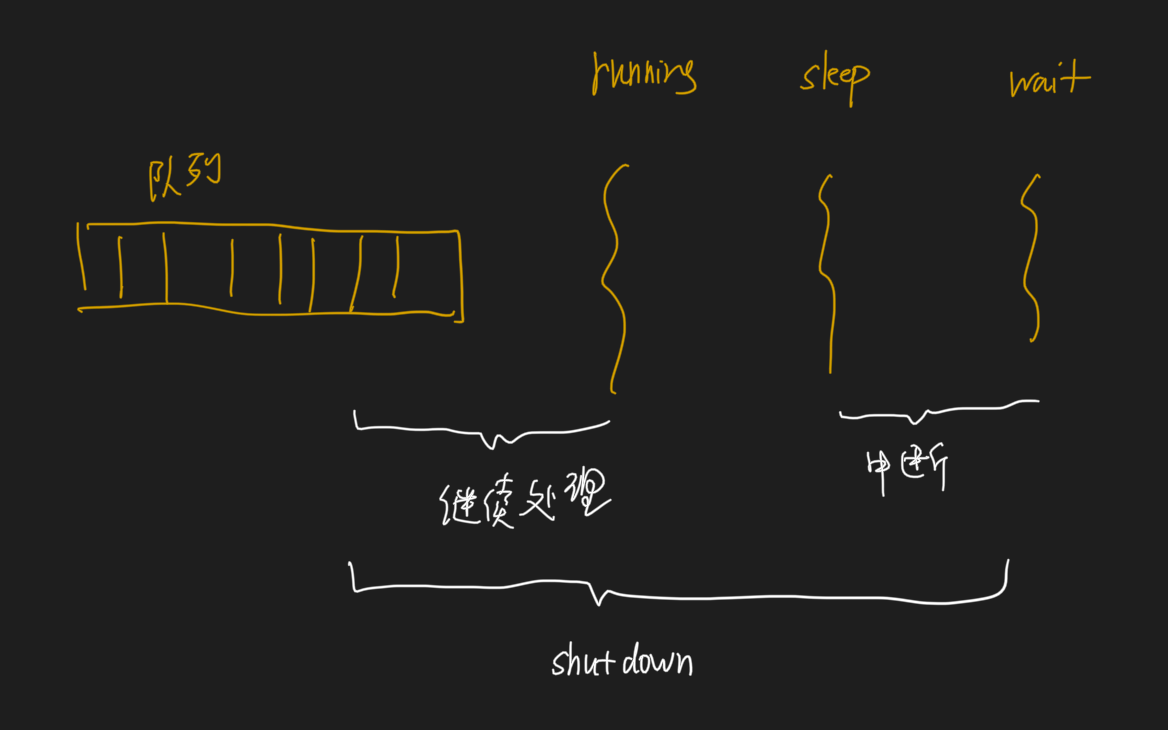 running sleep wait
队列
继续处理
中断
shutdown